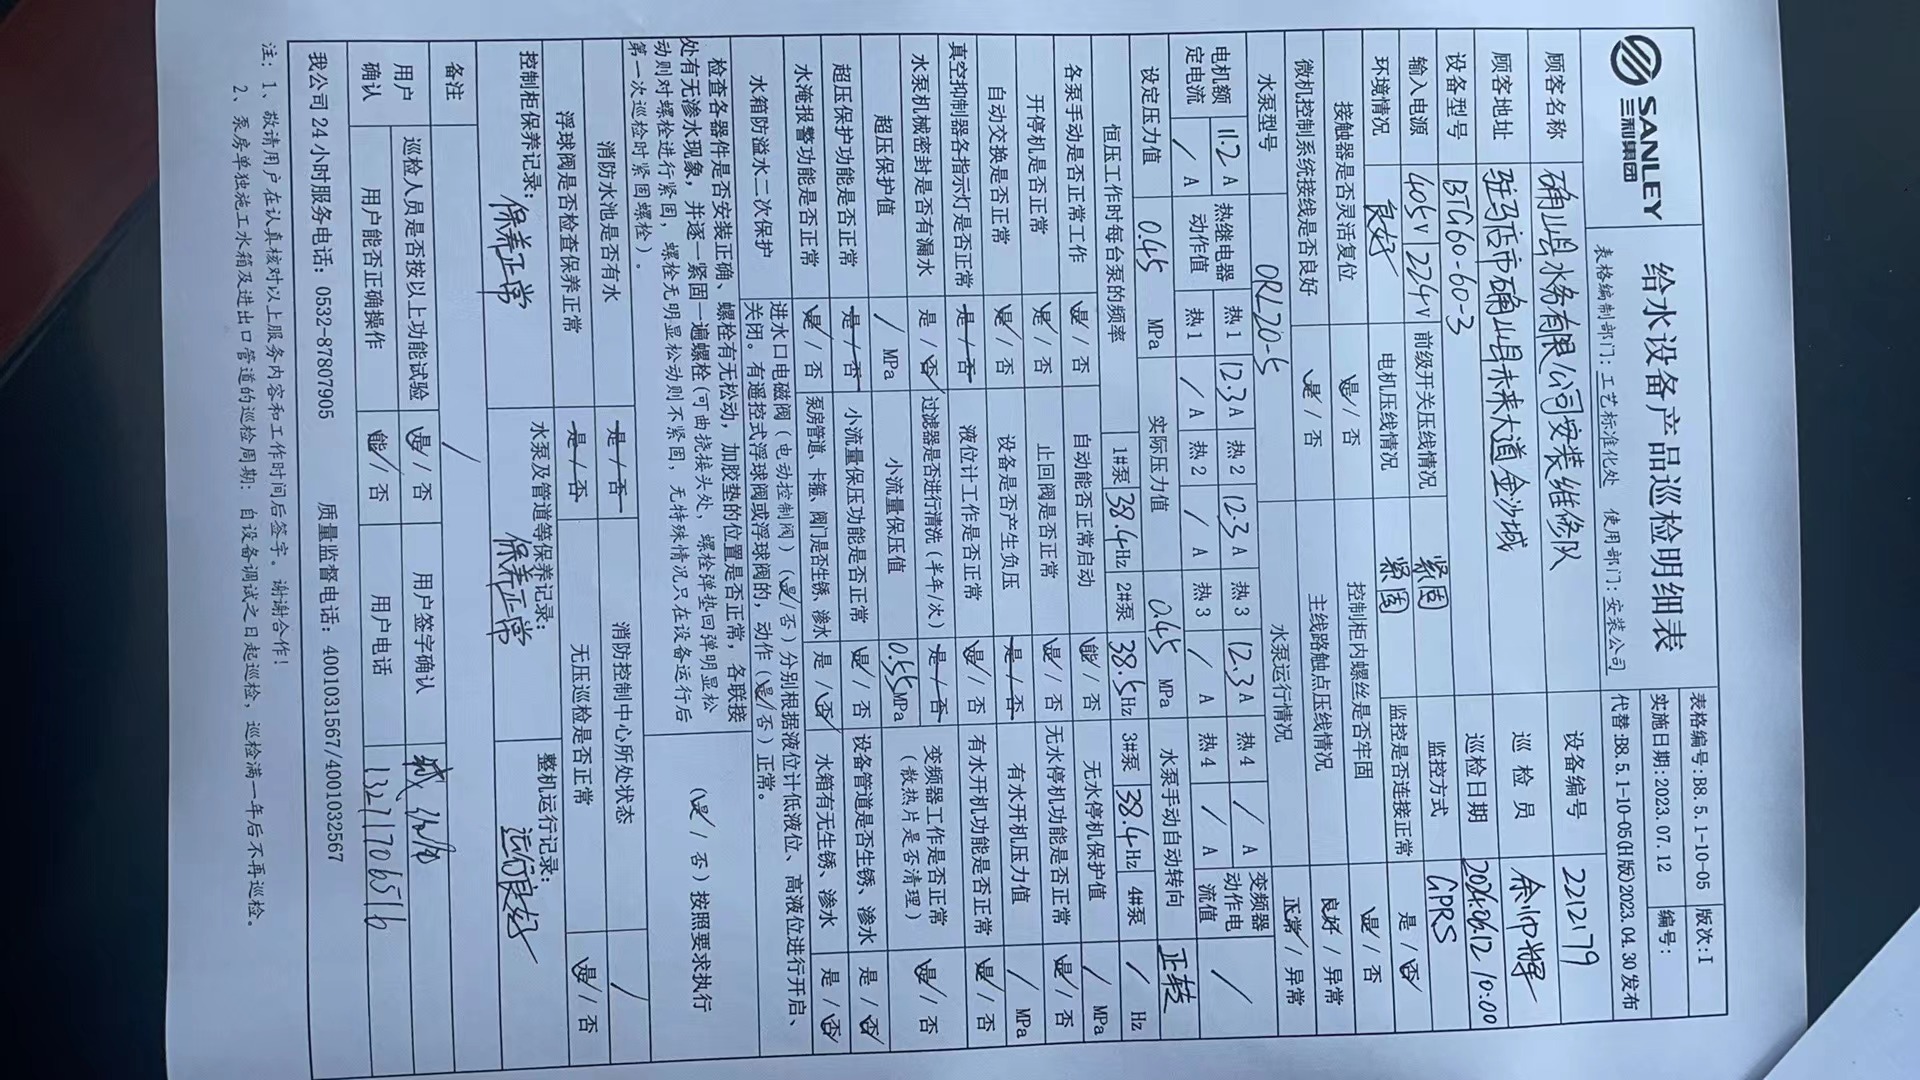 SANLEY
三利集团
给水设备产品巡检明细表
表格编制部门:工艺标准化处 使用部门:安装公司
表格编号:B8.5.1-10-05 版次:I
实施日期:2023.07.12 编号:
代替:B8.5.1-10-05(H版)2023.04.30发布
顾客名称 确山县水务有限公司安装维修队 设备编号 2212179
顾客地址 驻马店市确山县未来大道金沙域 巡检员
设备型号 BTG60-60-3 巡检日期 2024.06.12 10:00
输入电源 405V 224V 前级开关压线情况 紧固 监控方式 GPRS
环境情况 良好 电机压线情况 紧固 监控是否连接正常 是/否
接触器是否灵活复位 是/否 控制柜内螺丝是否牢固 是/否
微机控制系统接线是否良好 是/否 主线路触点压线情况 良好/异常
水泵型号 ORL20-5 水泵运行情况 正常/异常
电机额定电流 11.2 A 热继电器动作值 热1 12.3A 热2 12.3A 热3 12.3A 热4 / A 变频器动作电流值 /
/ A 热1 / A 热2 / A 热3 / A 热4 / A
设定压力值 0.45 MPa 实际压力值 0.45 MPa 水泵手动自动转向 正转
恒压工作时每台泵的频率 1#泵 38.4Hz 2#泵 38.5Hz 3#泵 38.4Hz 4#泵 / Hz
各泵手动是否正常工作 是/否 自动能否正常启动 能/否 无水停机保护值 / MPa
开停机是否正常 是/否 止回阀是否正常 是/否 无水停机功能是否正常 是/否
自动交换是否正常 是/否 设备是否产生负压 是/否 有水开机压力值 / MPa
真空抑制器各指示灯是否正常 是/否 液位计工作是否正常 是/否 有水开机功能是否正常 是/否
水泵机械密封是否有漏水 是/否 过滤器是否进行清洗(半年/次) 是/否 变频器工作是否正常(散热片是否清理) 是/否
超压保护值 / MPa 小流量保压值 0.55MPa
超压保护功能是否正常 是/否 小流量保压功能是否正常 是/否 设备管道是否生锈、渗水 是/否
水淹报警功能是否正常 是/否 泵房管道、卡箍、阀门是否生锈、渗水 是/否 水箱有无生锈、渗水 是/否
水箱防溢水二次保护 进水口电磁阀(电动控制阀)(是/否)分别根据液位计低液位、高液位进行开启、
关闭。有遥控式浮球阀或浮球阀的,动作(是/否)正常。
检查各器件是否安装正确、螺栓有无松动,加胶垫的位置是否正常,各联接
处有无渗水现象,并逐一紧固一遍螺栓(可曲挠接头处,螺栓弹垫回弹明显松
动则对螺栓进行紧固,螺栓无明显松动则不紧固,无特殊情况只在设备运行后
第一次巡检时紧固螺栓)。
(是/否)按照要求执行
消防水池是否有水 是/否 消防控制中心所处状态 /
浮球阀是否检查保养正常 是/否 无压巡检是否正常 是/否
控制柜保养记录: 水泵及管道等保养记录: 整机运行记录:
保养正常 保养正常 运行良好
备注 /
用户确认 巡检人员是否按以上功能试验 是/否 用户签字确认
用户能否正确操作 能/否 用户电话 13217065516
我公司24小时服务电话:0532-87807905 质量监督电话:4001031567/4001032567
注:1、敬请用户在认真核对以上服务内容和工作时间后签字。谢谢合作!
2、泵房单独施工水箱及进出口管道的巡检周期:自设备调试之日起巡检,巡检满一年后不再巡检。